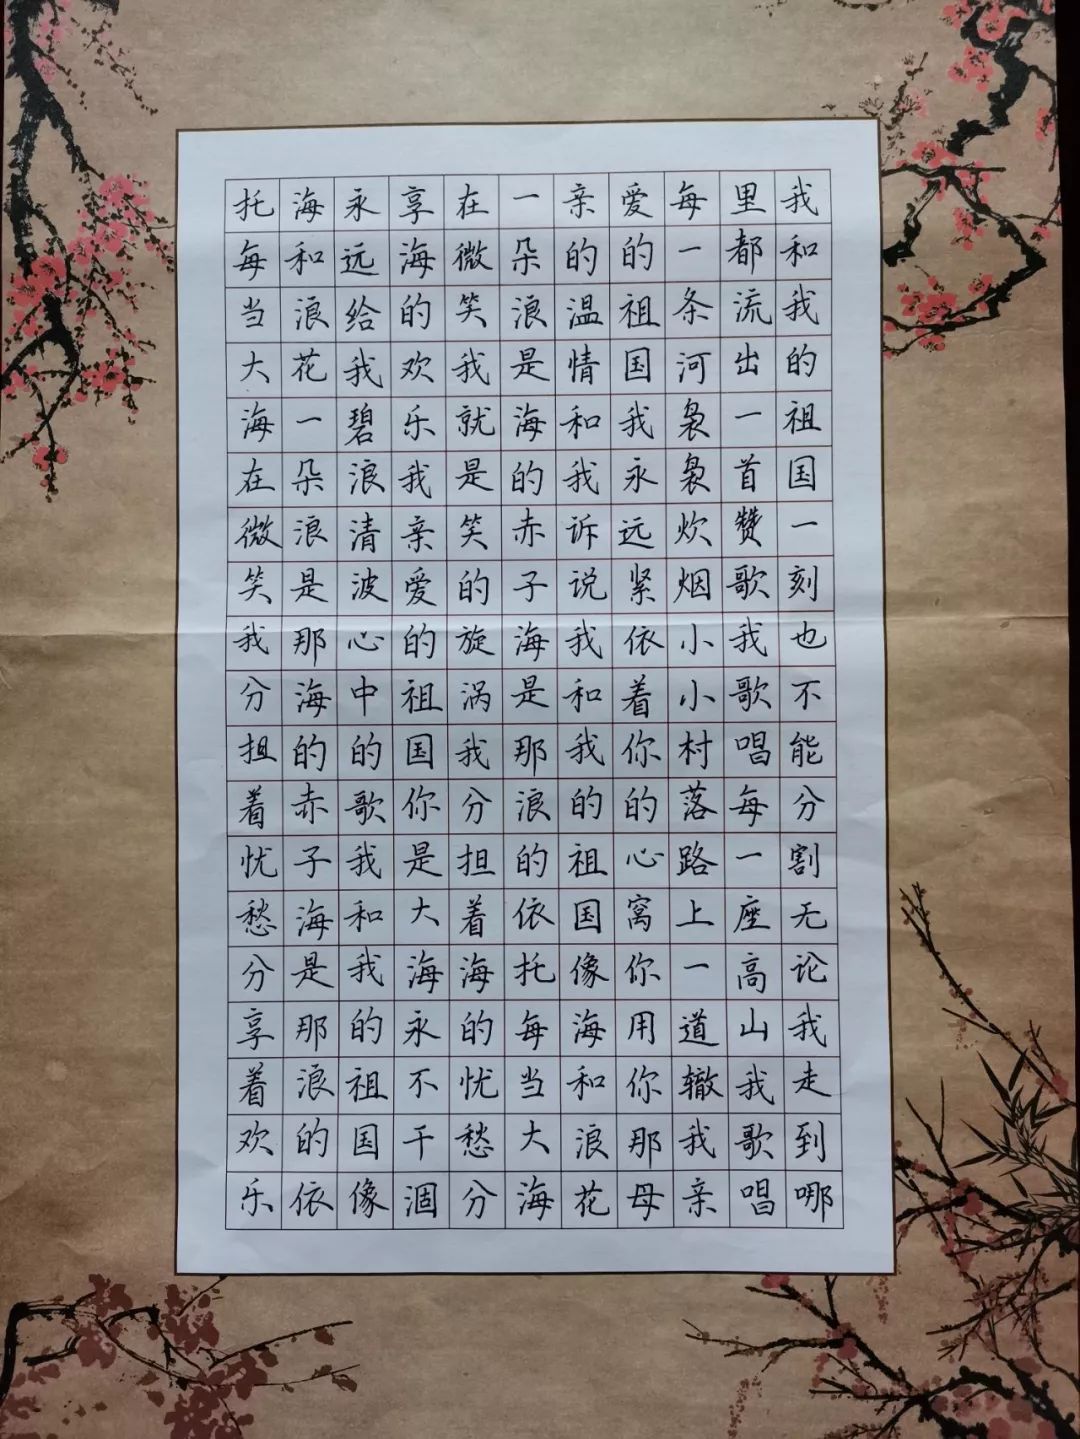 我和我的祖国一刻也不能分割无论我走到哪
里都流出一首赞歌我歌唱每一座高山我歌唱
每一条河袅袅炊烟小小村落路上一道辙我亲
爱的祖国我永远紧依着你的心窝你用你那母
亲的温情和我诉说我和我的祖国像海和浪花
一朵浪是海的赤子海是那浪的依托每当大海
在微笑我就是笑的旋涡我分担着海的忧愁分
享海的欢乐我亲爱的祖国你是大海永不干涸
永远给我碧浪清波心中的歌我和我的祖国像
海和浪花一朵浪是那海的赤子海是那浪的依
托每当大海在微笑我分担着忧愁分享着欢乐